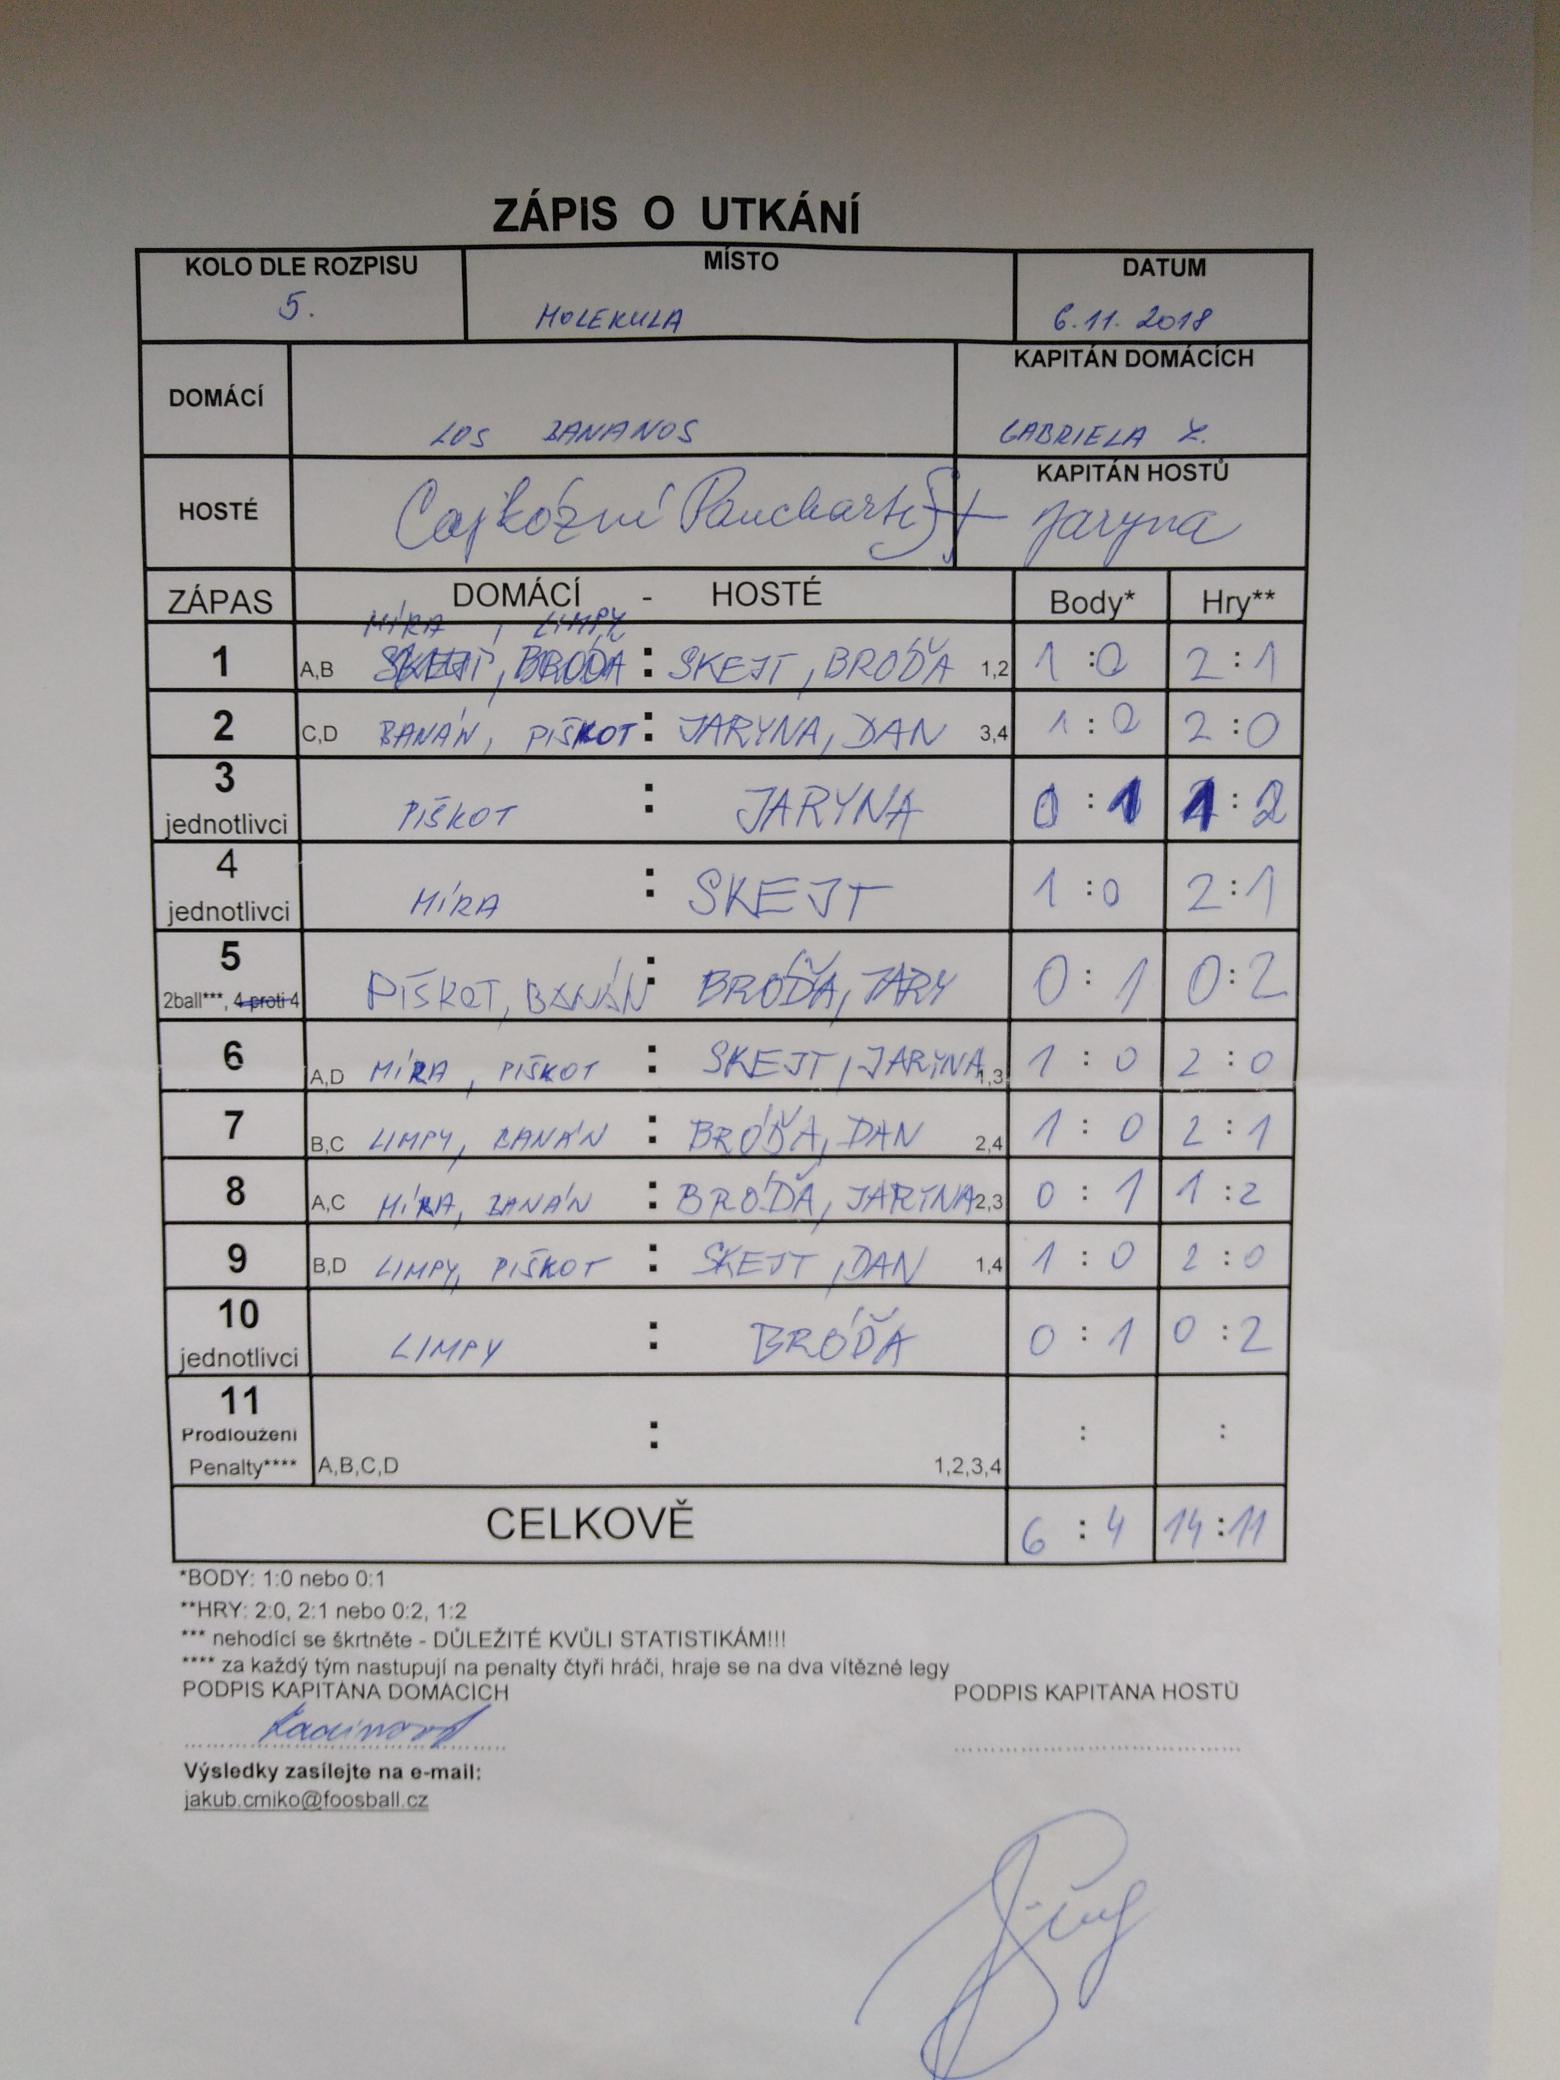 ZÁPIS O UTKÁNÍ
KOLO DLE ROZPISU MÍSTO DATUM
5. MOLEKULA 6.11.2018
DOMÁCÍ LOS BANANOS KAPITÁN DOMÁCÍCH
GABRIELA
HOSTÉ KAPITÁN HOSTŮ
Jaryna
ZÁPAS DOMÁCÍ - HOSTÉ Body* Hry**
MÍRA, LIMPY
1 A,B SKEJT, BRÓĎA : SKEJT, BRÓĎA 1,2 1:0 2:1
2 C,D BANÁN, PIŠKOT : JARYNA, DAN 3,4 1:0 2:0
3 jednotlivci PIŠKOT : JARYNA 0:1 1:2
4 jednotlivci MÍRA : SKEJT 1:0 2:1
5 2ball***, 4 proti 4 PIŠKOT, BANÁN : BRÓĎA, JARY 0:1 0:2
6 A,D MÍRA, PIŠKOT : SKEJT, JARYNA 1,3 1:0 2:0
7 B,C LIMPY, BANÁN : BRÓĎA, DAN 2,4 1:0 2:1
8 A,C MÍRA, BANÁN : BRÓĎA, JARYNA 2,3 0:1 1:2
9 B,D LIMPY, PIŠKOT : SKEJT, DAN 1,4 1:0 2:0
10 jednotlivci LIMPY : BRÓĎA 0:1 0:2
11 Prodloužení : : :
Penalty**** A,B,C,D 1,2,3,4
CELKOVĚ 6:4 14:11
*BODY: 1:0 nebo 0:1
**HRY: 2:0, 2:1 nebo 0:2, 1:2
*** nehodící se škrtněte - DŮLEŽITÉ KVŮLI STATISTIKÁM!!!
**** za každý tým nastupují na penalty čtyři hráči, hraje se na dva vítězné legy
PODPIS KAPITÁNA DOMÁCÍCH PODPIS KAPITÁNA HOSTŮ
Výsledky zasílejte na e-mail:
jakub.cmiko@foosball.cz